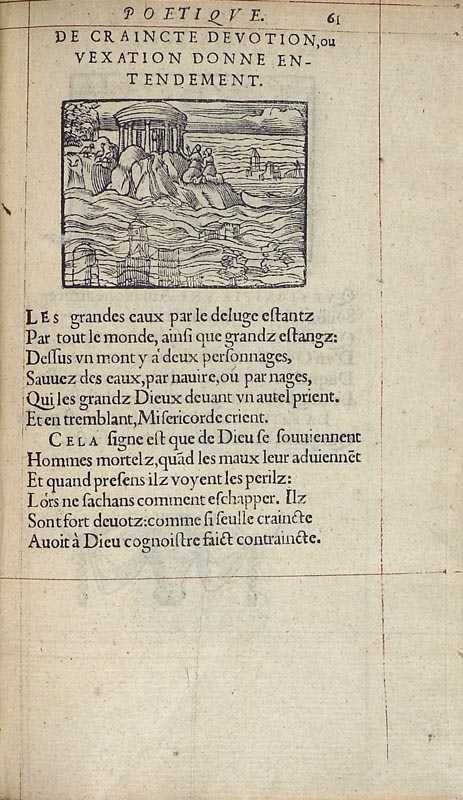 POETIQVE. 61
DE CRAINCTE DEVOTION, ou
VEXATION DONNE EN-
TENDEMENT.
LES grandes eaux par le deluge eſtantz
Par tout le monde, ainſi que grandz eſtangz:
Deſſus vn mont y a deux perſonnages,
Sauuez des eaux, par nauire, ou par nages,
Qui les grandz Dieux deuant vn autel prient.
Et en tremblant, Miſericorde crient.
CELA ſigne eſt que de Dieu ſe ſouuiennent
Hommes mortelz, quãd les maux leur aduiennẽt
Et quand preſens ilz voyent les perilz:
Lórs ne ſachans comment eſchapper. Ilz
Sont fort deuotz: comme ſi ſeulle craincte
Auoit à Dieu cognoiſtre faict contraincte.